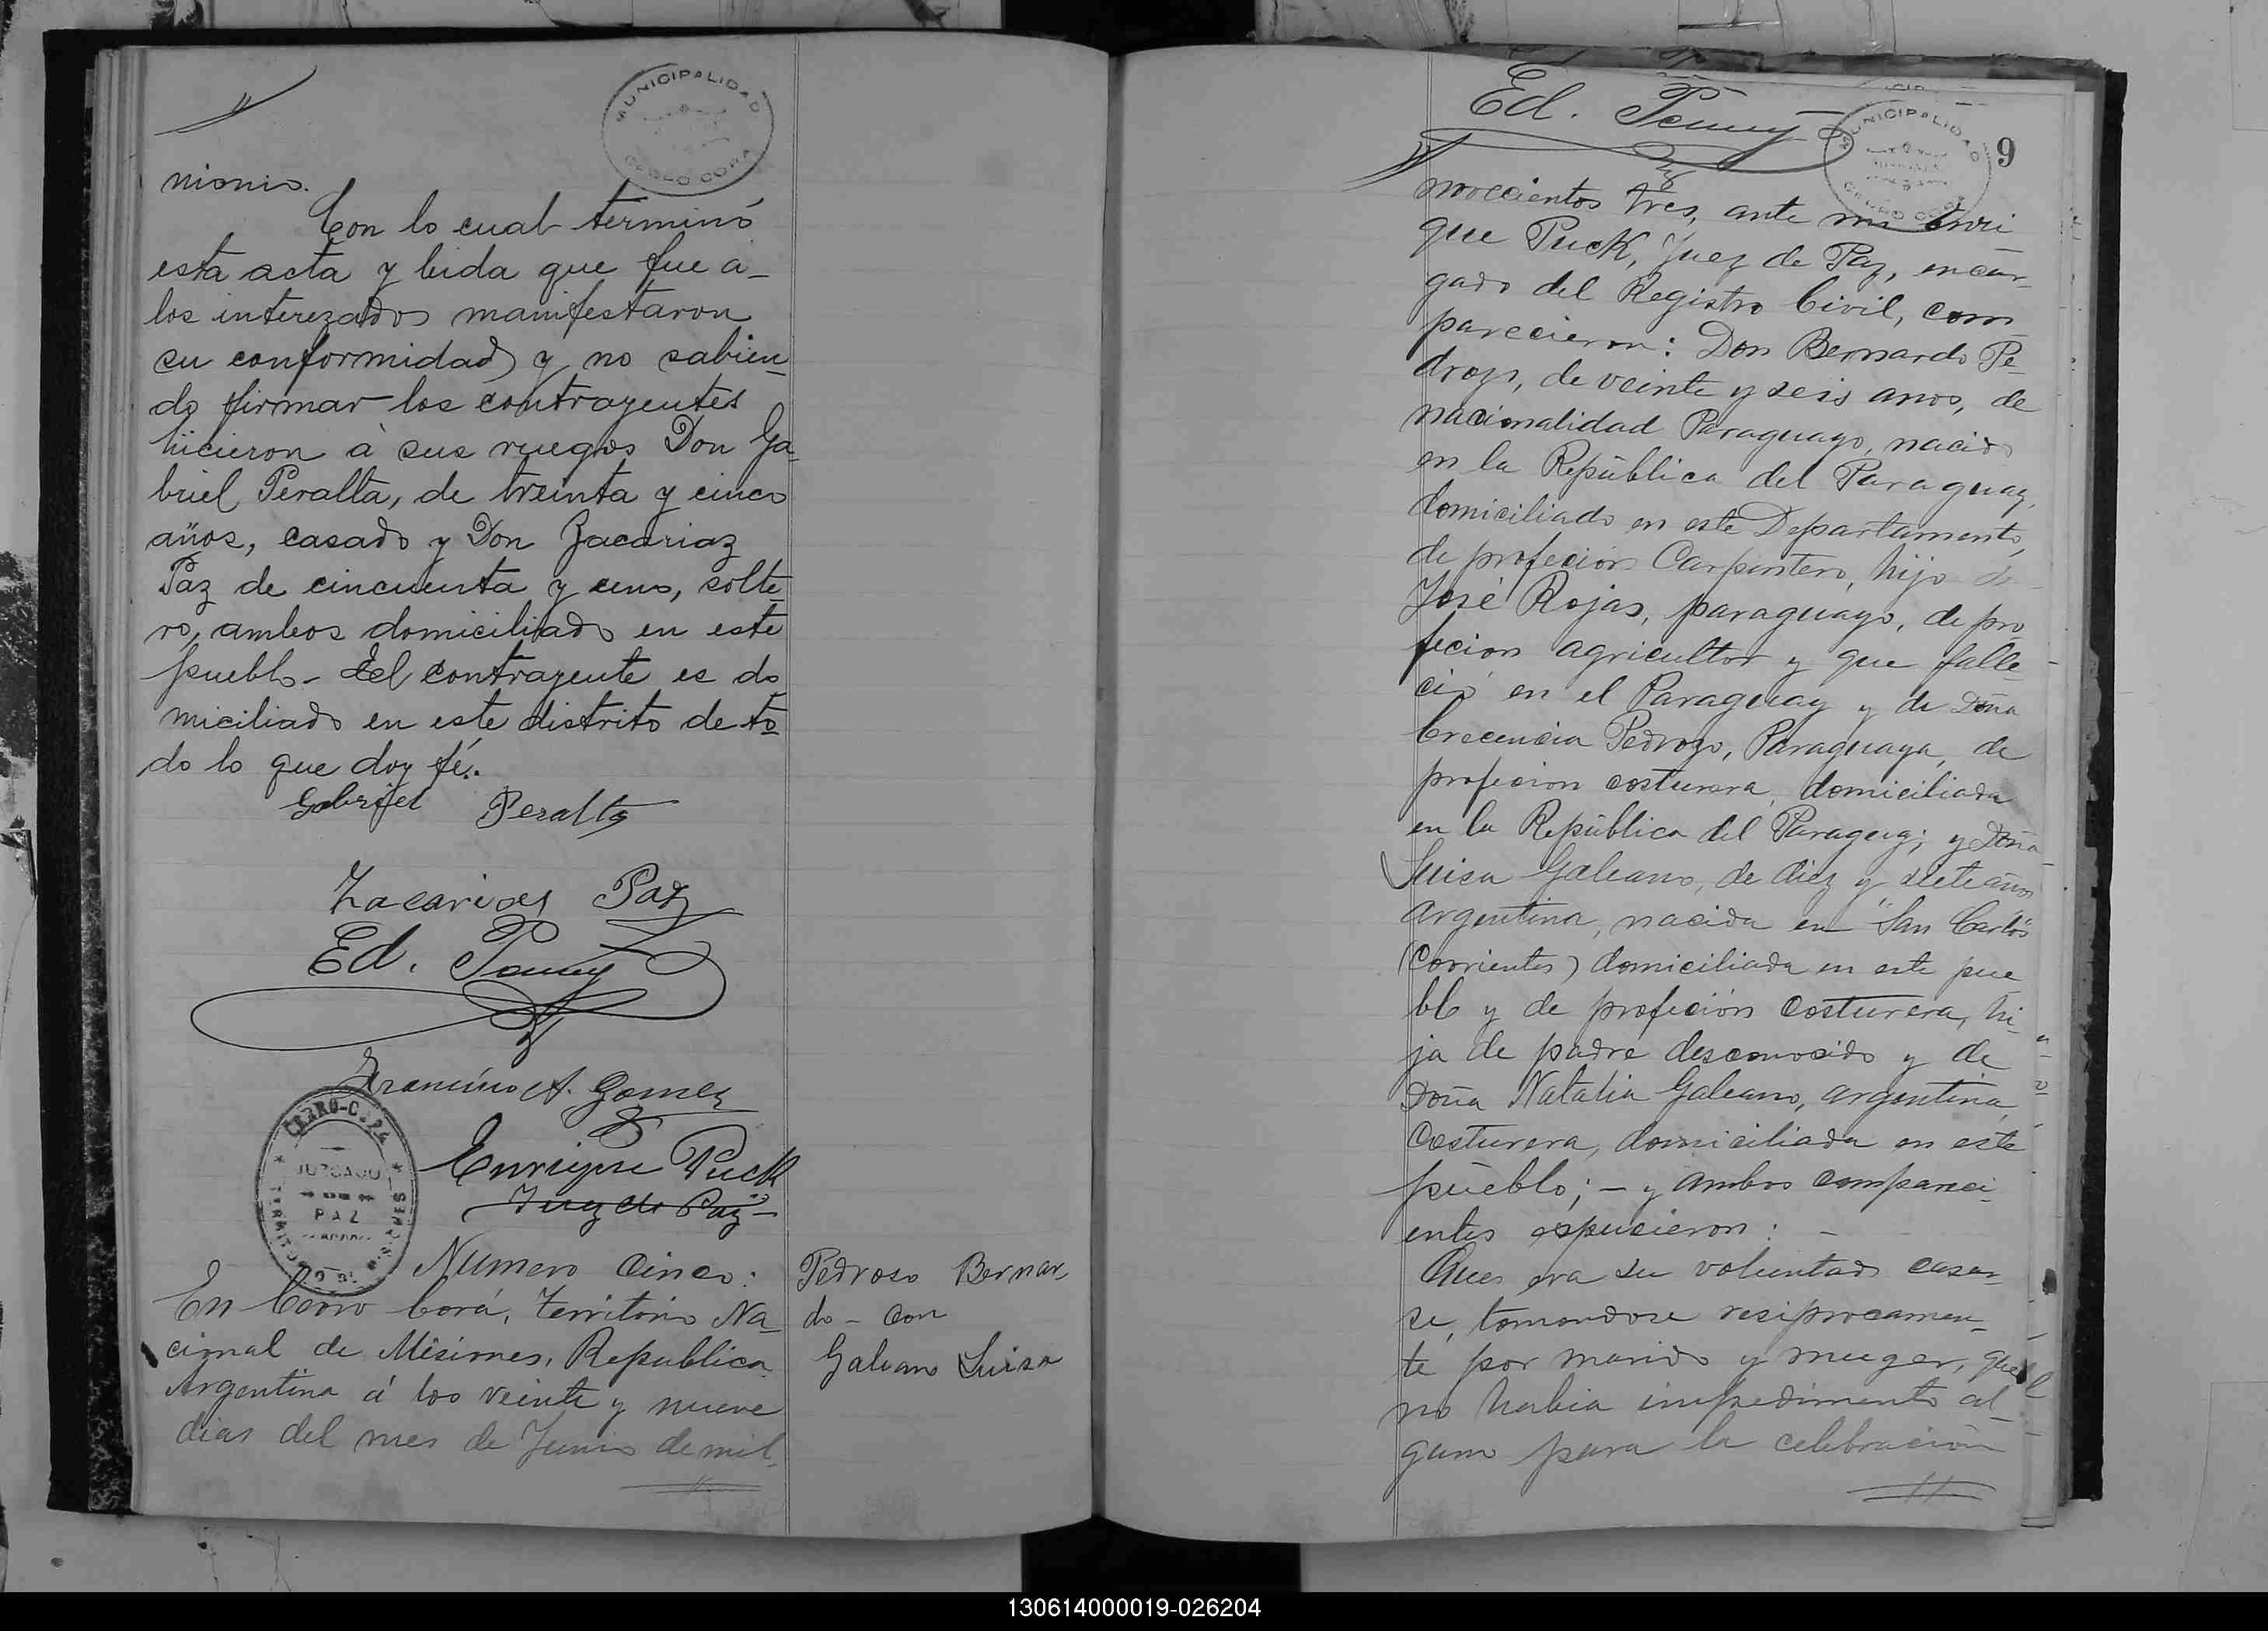 MUNICIPALIDAD
CERRO CORA
nionio.
Con lo cual terminó
esta acta y leida que fue a-
los interezados manifestaron
su conformidad y no sabien-
do firmar los contrayentes
hicieron à sus ruegos Don Ga-
briel Peralta, de treinta y cinco
años, casado y Don Zacariaz
Paz de cincuenta y uno, solte-
ro, ambos domiciliados en este
pueblo - El contrayente es do
miciliado en este distrito de to-
do lo que doy fé.
Gabriel Peralta
Zacarias Paz
Ed.
A. Gomez
Enrique Puck
Juez de Paz
CERRO-CORA
JUZGADO
DE
PAZ
Numero Cinco:
En Cerro Corá, Territorio Na-
cional de Misiones, Republica
Argentina á los veinte y nueve
dias del mes de Junio de mil
Pedroso Bernar
do - con
Galeano Luisa
Ed.
MUNICIPALIDAD
CERRO CORA
9
novecientos tres, ante mi Enri
que Puck, Juez de Paz, encar-
gado del Registro Civil, com
parecieron: Don Bernardo Pe-
drozo, de veinte y seis anos, de
nacionalidad Paraguayo, nacido
en la Repùblica del Paraguay,
domiciliado en este Departamento,
de profecion Carpintero, hijo de
José Rojas, paraguayo, de pro-
fecion agricultor y que falle-
ció en el Paraguay y de Doña
Crecencia Pedrozo, Paraguaya, de
profecion costurera, domiciliada
en la Repùblica del Paraguay; y Doña
Luisa Galeano, de diez y siete años
Argentina, nacida en "San Carlos"
(Corrientes) domiciliada en este pue
blo y de profeción Costurera, hi-
ja de padre desconocido y de
Doña Natalia Galeano, argentina,
Costurera, domiciliada en este
pueblo; - y ambos compareci-
entes espusieron: -
Que era su voluntad casar-
se, tomandose resiprocamen-
te por marido y muger, que
no habia impedimento al-
guno para la celebración
130614000019-026204